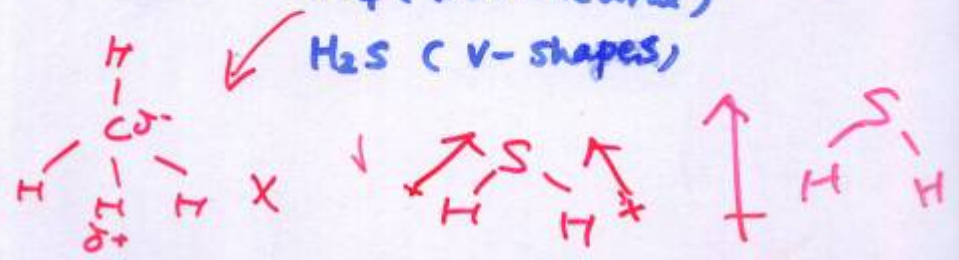 H₂S ( V- shapes)
H
Cδ-
H H H X
δ+
S
H H
S
H H